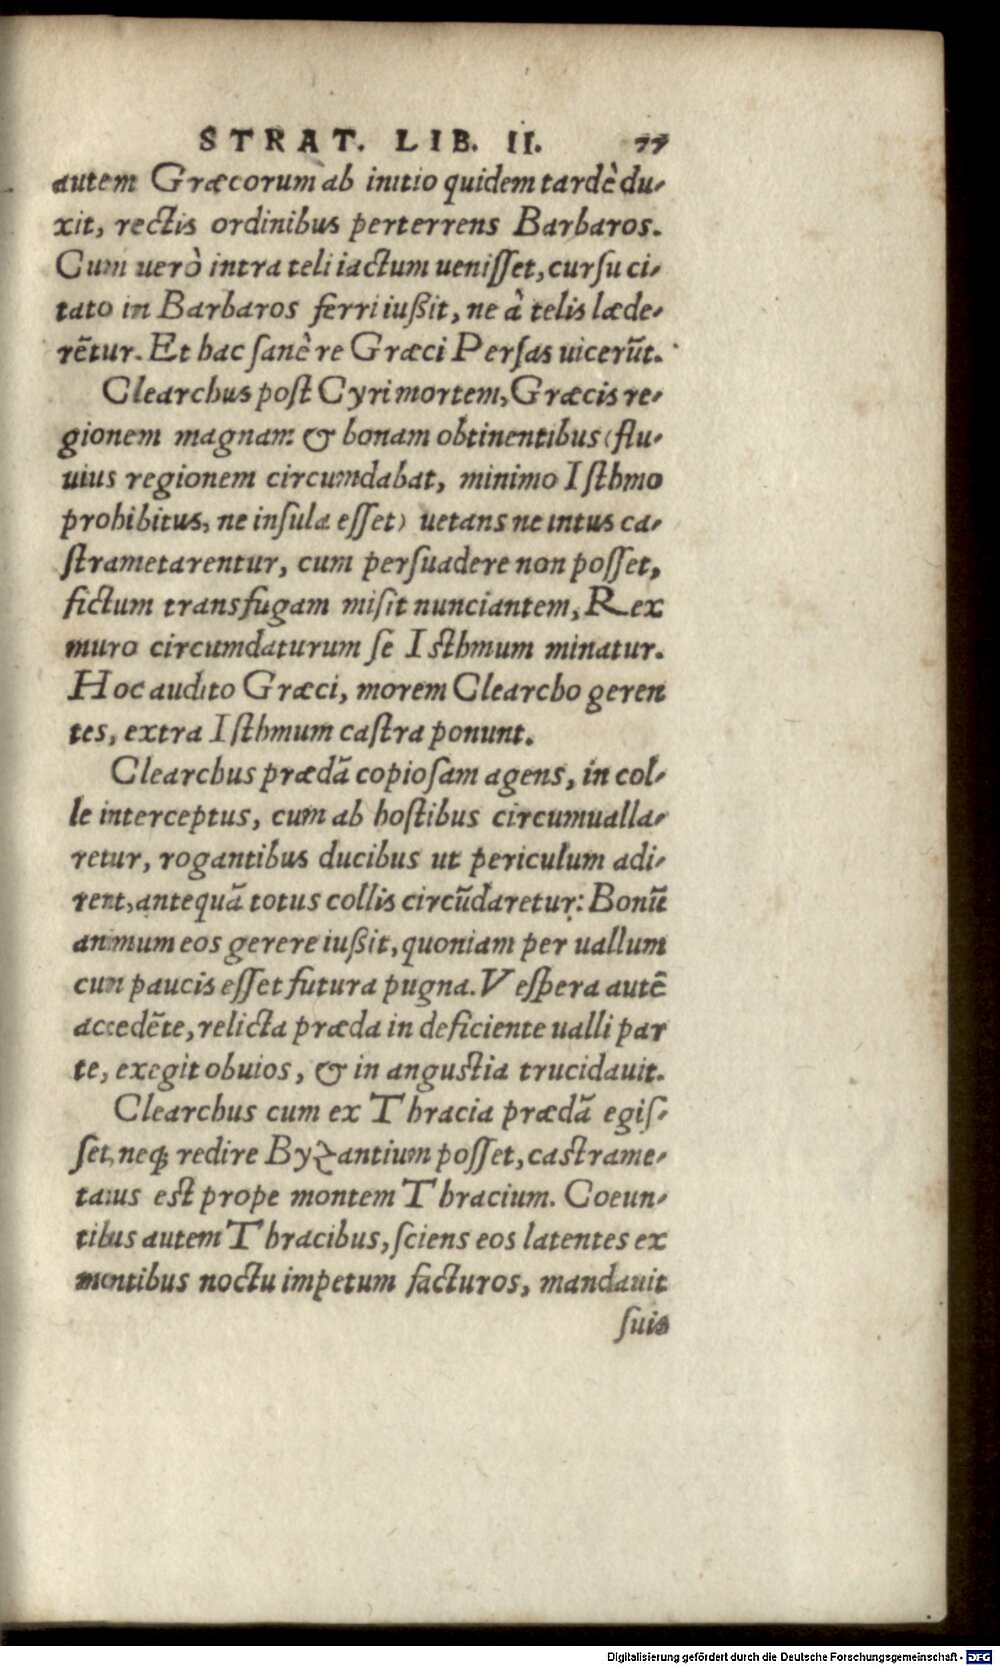 STRAT. LIB. II. 77
autem Græcorum ab initio quidem tardè du-
xit, rectis ordinibus perterrens Barbaros.
Cum uerò intra teli iactum uenisset, cursu ci-
tato in Barbaros ferri iußit, ne à telis læde-
rẽtur. Et hac sanè re Græci Persas uicerũt.
Clearchus post Cyri mortem, Græcis re-
gionem magnam & bonam obtinentibus (flu-
uius regionem circumdabat, minimo Isthmo
prohibitus, ne insula esset) uetans ne intus ca-
strametarentur, cum persuadere non posset,
fictum transfugam misit nunciantem, Rex
muro circumdaturum se Isthmum minatur.
Hoc audito Græci, morem Clearcho geren
tes, extra Isthmum castra ponunt.
Clearchus prædã copiosam agens, in col-
le interceptus, cum ab hostibus circumualla-
retur, rogantibus ducibus ut periculum adi-
rent, antequã totus collis circũdaretur: Bonũ
animum eos gerere iußit, quoniam per uallum
cum paucis esset futura pugna. Vespera autẽ
accedẽte, relicta præda in deficiente ualli par
te, exegit obuios, & in angustia trucidauit.
Clearchus cum ex Thracia prædã egis-
set, neq; redire Byzantium posset, castrame-
tatus est prope montem Thracium. Coeun-
tibus autem Thracibus, sciens eos latentes ex
montibus noctu impetum facturos, mandauit
suis
Digitalisierung gefördert durch die Deutsche Forschungsgemeinschaft - DFG